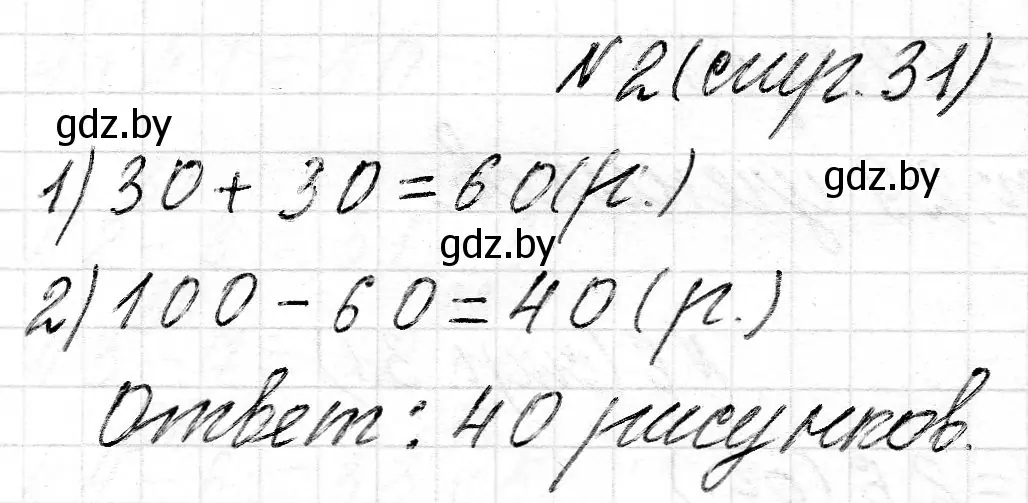 №2 (стр. 31)
gdz.by
1) 30 + 30 = 60 (р.)
gdz.by
gdz.by
2) 100 - 60 = 40 (р.)
Ответ: 40 рисунков.